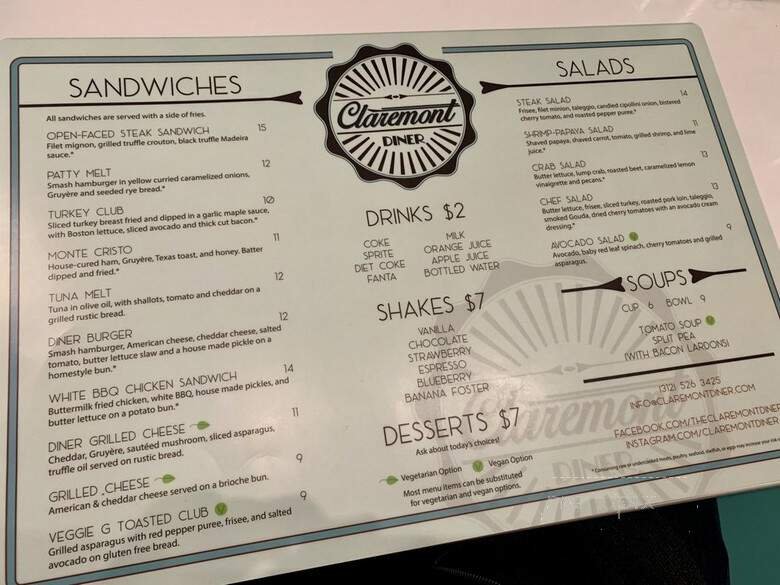 SANDWICHES
All sandwiches are served with a side of fries.
OPEN-FACED STEAK SANDWICH 15
Filet mignon, grilled truffle crouton, black truffle Madeira
sauce.*
PATTY MELT 12
Smash hamburger in yellow curried caramelized onions,
Gruyère and seeded rye bread.*
TURKEY CLUB 10
Sliced turkey breast fried and dipped in a garlic maple sauce,
with Boston lettuce, sliced avocado and thick cut bacon.*
MONTE CRISTO 11
House-cured ham, Gruyère, Texas toast, and honey. Batter
dipped and fried.*
TUNA MELT 12
Tuna in olive oil, with shallots, tomato and cheddar on a
grilled rustic bread.
DINER BURGER 12
Smash hamburger, American cheese, cheddar cheese, salted
tomato, butter lettuce slaw and a house made pickle on a
homestyle bun.*
WHITE BBQ CHICKEN SANDWICH 14
Buttermilk fried chicken, white BBQ, house made pickles, and
butter lettuce on a potato bun.*
DINER GRILLED CHEESE 11
Cheddar, Gruyère, sautéed mushroom, sliced asparagus,
truffle oil served on rustic bread.
GRILLED CHEESE 9
American & cheddar cheese served on a brioche bun.
VEGGIE G TOASTED CLUB V 9
Grilled asparagus with red pepper puree, frisee, and salted
avocado on gluten free bread.
Claremont
DINER
DRINKS $2
COKE
SPRITE
DIET COKE
FANTA
MILK
ORANGE JUICE
APPLE JUICE
BOTTLED WATER
SHAKES $7
VANILLA
CHOCOLATE
STRAWBERRY
ESPRESSO
BLUEBERRY
BANANA FOSTER
DESSERTS $7
Ask about today's choices!
Vegetarian Option V Vegan Option
Most menu items can be substituted
for vegetarian and vegan options.
SALADS
STEAK SALAD 14
Frisee, filet minion, taleggio, candied cipollini onion, blistered
cherry tomato, and roasted pepper puree.*
SHRIMP-PAPAYA SALAD 11
Shaved papaya, shaved carrot, tomato, grilled shrimp, and lime
juice.*
CRAB SALAD 13
Butter lettuce, lump crab, roasted beet, caramelized lemon
vinaigrette and pecans.*
CHEF SALAD 13
Butter lettuce, frisee, sliced turkey, roasted pork loin, taleggio,
smoked Gouda, dried cherry tomatoes with an avocado cream
dressing.*
AVOCADO SALAD V 9
Avocado, baby red leaf spinach, cherry tomatoes and grilled
asparagus.
SOUPS
CUP 6 BOWL 9
TOMATO SOUP V
SPLIT PEA
(WITH BACON LARDONS)
(312) 526 3425
INFO@CLAREMONTDINER.COM
FACEBOOK.COM/THECLAREMONTDINER
INSTAGRAM.COM/CLAREMONTDINER
* Consuming raw or undercooked meats, poultry, seafood, shellfish, or eggs may increase your risk
Claremont
DINER